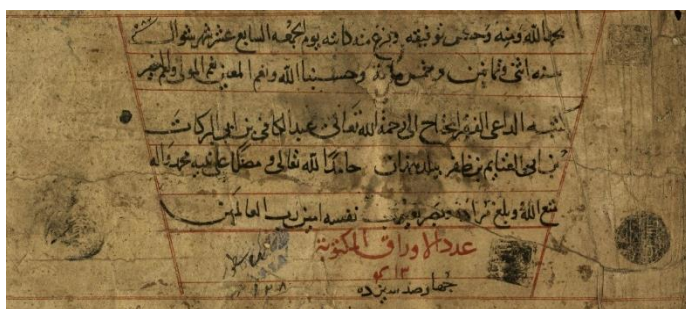 بحمد الله ومنه وحسن توفيقه وفرغ من كتابته يوم الجمعه السابع عشر شهر شوال
سنه اثنى وثمانين وخمس مائة وحسبنا الله ونعم المعين نعم المولى ونعم النصير
كتبه الداعى الفقير المحتاج الى رحمة الله تعالى عبد الكافى بن ابى البركات
بن ابى الغنايم بن ظفر ببلد همدان حامدا لله تعالى و مصليا على نبيه محمد واله
متع الله وبلغ مراده نفسه امين رب العالمين
عدد الاوراق المكتوبة
٤١٣
چهار صد سيزده